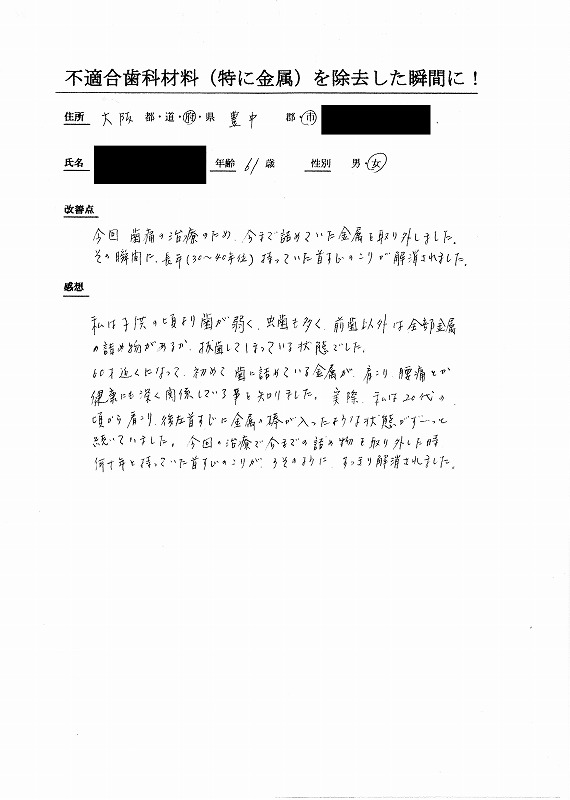 不適合歯科材料（特に金属）を除去した瞬間に！
住所 大阪 都・道・府・県 豊中 郡・市
氏名 年齢 61 歳 性別 男・女
改善点
今回 歯痛の治療のため、今まで詰めていた金属を取り外しました。
その瞬間に、長年(30〜40年位)持っていた首すじのこりが解消されました。
感想
私は子供の頃より歯が弱く、虫歯も多く、前歯以外は全部金属
の詰め物があるか、抜歯してしまっている状態でした。
60才近くになって、初めて歯に詰めている金属が、肩こり、腰痛とか
健康にも深く関係している事を知りました。実際、私は20代の
頃から肩こり、後左首すじに金属の棒が入ったような状態がずーっと
続いていました。今回の治療で今までの詰め物を取り外した時
何十年と持っていた首すじのこりが、うそのように、すっきり解消されました。